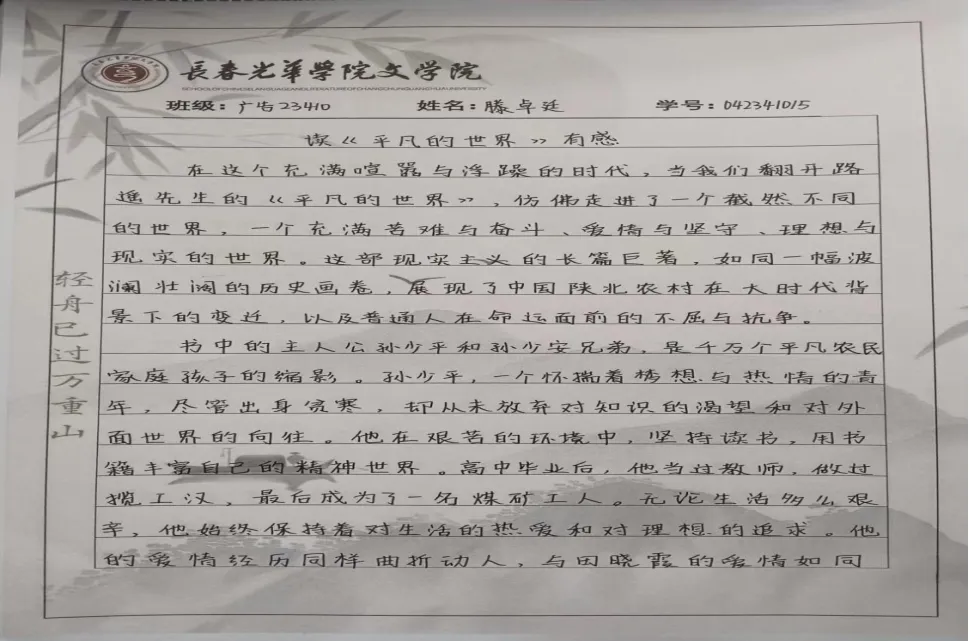 長春光華學院文学院
SCHOOL OF CHINESE LANGUAGE AND LITERATURE OF CHANGCHUN GUANGHUA UNIVERSITY
班级：广告23410 姓名：滕卓廷 学号：042341015
读《平凡的世界》有感
在这个充满喧嚣与浮躁的时代，当我们翻开路
遥先生的《平凡的世界》，仿佛走进了一个截然不同
的世界，一个充满苦难与奋斗、爱情与坚守、理想与
现实的世界。这部现实主义的长篇巨著，如同一幅波
澜壮阔的历史画卷，展现了中国陕北农村在大时代背
景下的变迁，以及普通人在命运面前的不屈与抗争。
书中的主人公孙少平和孙少安兄弟，是千万个平凡农民
家庭孩子的缩影。孙少平，一个怀揣着梦想与热情的青
年，尽管出身贫寒，却从未放弃对知识的渴望和对外
面世界的向往。他在艰苦的环境中，坚持读书，用书
籍丰富自己的精神世界。高中毕业后，他当过教师，做过
揽工汉，最后成为了一名煤矿工人。无论生活多么艰
辛，他始终保持着对生活的热爱和对理想的追求。他
的爱情经历同样曲折动人，与田晓霞的爱情如同
轻舟已过万重山